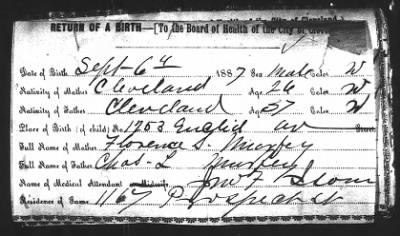 RETURN OF A BIRTH—[To the Board of Health of the City of Cleveland
Date of Birth Sept 6th 1887 Sex Male Color W
Nativity of Mother Cleveland Age 26 Color W
Nativity of Father Cleveland Age 37 Color W
Place of Birth (of child) No. 1203 Euclid av Street
Full Name of Mother Florence S. Murfey
Full Name of Father Chas. L Murfey
Name of Medical Attendant Midwife Jno F Isom
Residence of Same 1167 Prospect st